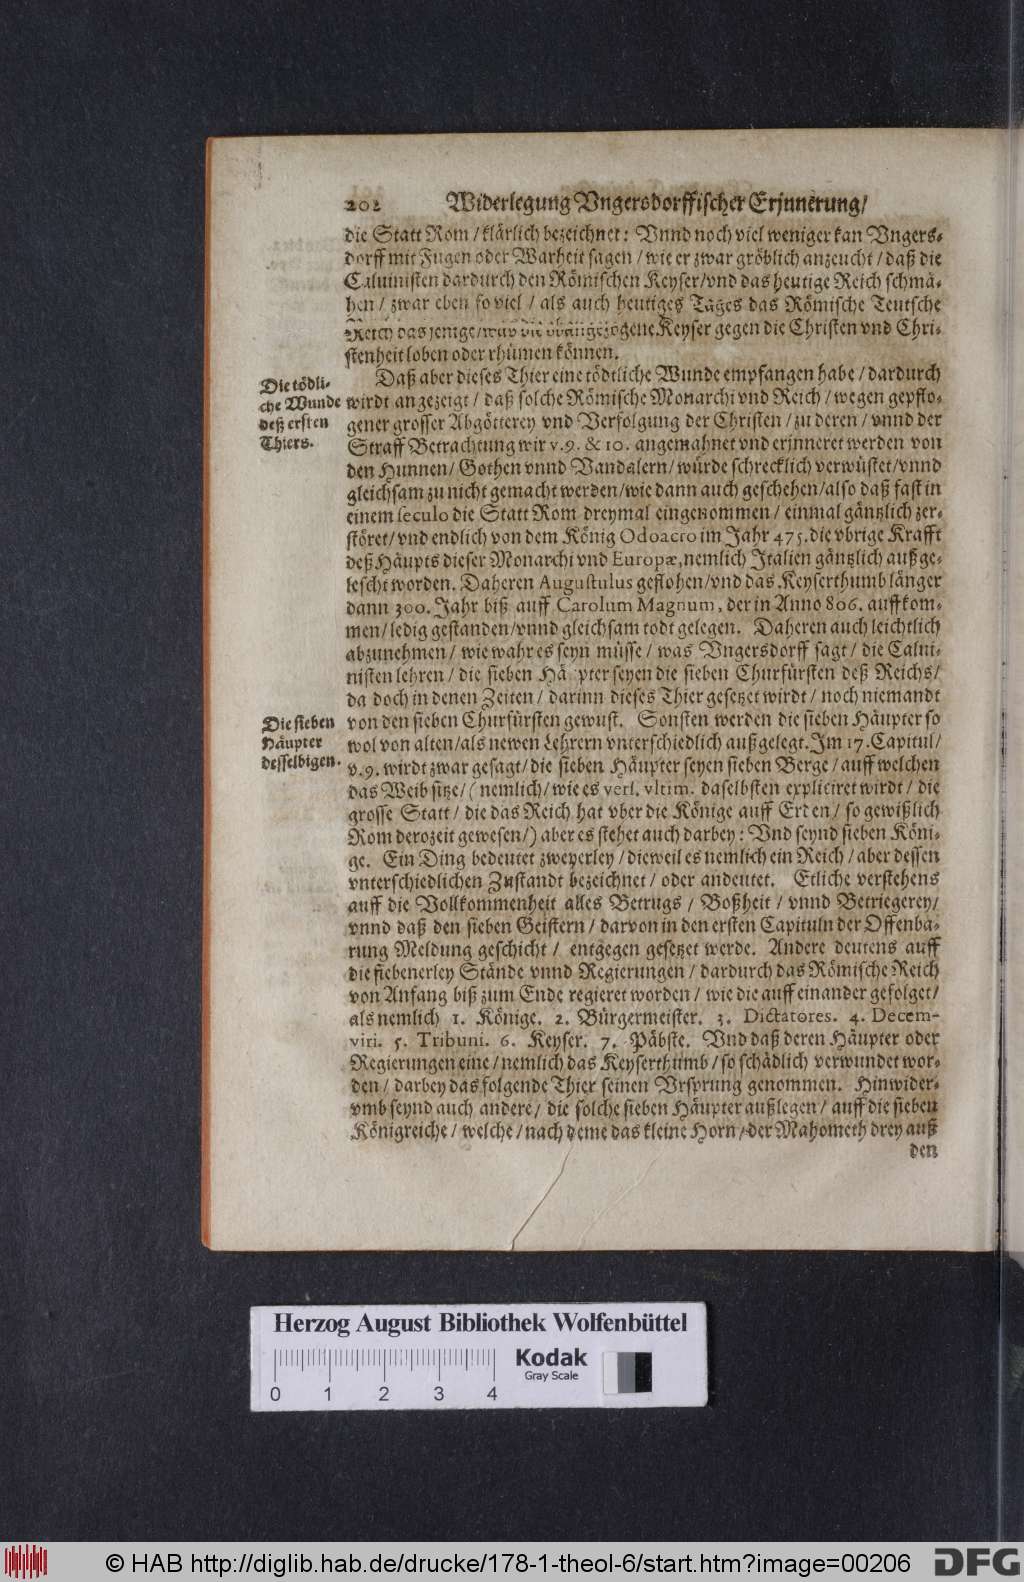 202 Widerlegung Vngersdorffischer Erjnnerung/
die Statt Rom/klärlich bezeichnet: Vnnd noch viel weniger kan Vngers-
dorff mit Fugen oder Warheit sagen/wie er zwar gröblich anzeucht/daß die
Caluinisten dardurch den Römischen Keyser/vnd das heutige Reich schmä-
hen/zwar eben so viel/als auch heutiges Tages das Römische Teutsche
Reich das jenige/was die obangezogene Keyser gegen die Christen vnd Chri-
stenheit loben oder rhümen können.
Daß aber dieses Thier eine tödtliche Wunde empfangen habe/dardurch
Die tödli-
che Wunde
deß ersten
Thiers.
wirdt angezeigt/daß solche Römische Monarchi vnd Reich/wegen gepflo-
gener grosser Abgötterey vnd Verfolgung der Christen/zu deren/vnnd der
Straff Betrachtung wir v.9. & 10. angemahnet vnd erjnneret werden von
den Hunnen/Gothen vnnd Vandalern/würde schrecklich verwüstet/vnnd
gleichsam zu nicht gemacht werden/wie dann auch geschehen/also daß fast in
einem seculo die Statt Rom dreymal eingenommen/einmal gäntzlich zer-
störet/vnd endlich von dem König Odoacro im Jahr 475. die vbrige Krafft
deß Häupts dieser Monarchi vnd Europæ, nemlich Italien gäntzlich außge-
lescht worden. Daheren Augustulus geflohen/vnd das Keyserthumb länger
dann 300. Jahr biß auff Carolum Magnum, der in Anno 806. auffkom-
men/ledig gestanden/vnnd gleichsam todt gelegen. Daheren auch leichtlich
abzunehmen/wie wahr es seyn müsse/was Vngersdorff sagt/die Calui-
nisten lehren/die sieben Häupter seyen die sieben Churfürsten deß Reichs/
da doch in denen Zeiten/darinn dieses Thier gesetzet wirdt/noch niemandt
Die sieben
Häupter
desselbigen.
von den sieben Churfürsten gewust. Sonsten werden die sieben Häupter so
wol von alten/als newen Lehrern vnterschiedlich außgelegt. Im 17. Capitul/
v.9. wirdt zwar gesagt/die sieben Häupter seyen sieben Berge/auff welchen
das Weib sitze/(nemlich/wie es vers. vltim. daselbsten expliciret wirdt/die
grosse Statt/die das Reich hat vber die Könige auff Erden/so gewißlich
Rom derozeit gewesen/) aber es stehet auch darbey: Vnd seynd sieben Köni-
ge. Ein Ding bedeutet zweyerley/dieweil es nemlich ein Reich/aber dessen
vnterschiedlichen Zustandt bezeichnet/oder andeutet. Etliche verstehens
auff die Vollkommenheit alles Betrugs/Boßheit/vnnd Betriegerey/
vnnd daß den sieben Geistern/darvon in den ersten Capituln der Offenba-
rung Meldung geschicht/entgegen gesetzet werde. Andere deutens auff
die siebenerley Stände vnnd Regierungen/dardurch das Römische Reich
von Anfang biß zum Ende regieret worden/wie die auff einander gefolget/
als nemlich 1. Könige. 2. Bürgermeister. 3. Dictatores. 4. Decem-
viri. 5. Tribuni. 6. Keyser. 7. Päbste. Vnd daß deren Häupter oder
Regierungen eine/nemlich das Keyserthumb/so schädlich verwundet wor-
den/darbey das folgende Thier seinen Vrsprung genommen. Hinwider-
vmb seynd auch andere/die solche sieben Häupter außlegen/auff die sieben
Königreiche/welche/nach deme das kleine Horn/der Mahometh drey auß
den
Herzog August Bibliothek Wolfenbüttel
Kodak
Gray Scale
0 1 2 3 4
© HAB http://diglib.hab.de/drucke/178-1-theol-6/start.htm?image=00206
DFG